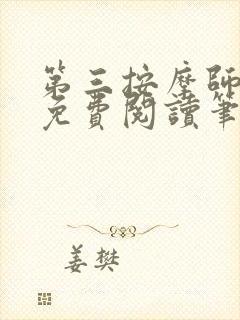 第三按摩師
免費閱讀筆
姜樊